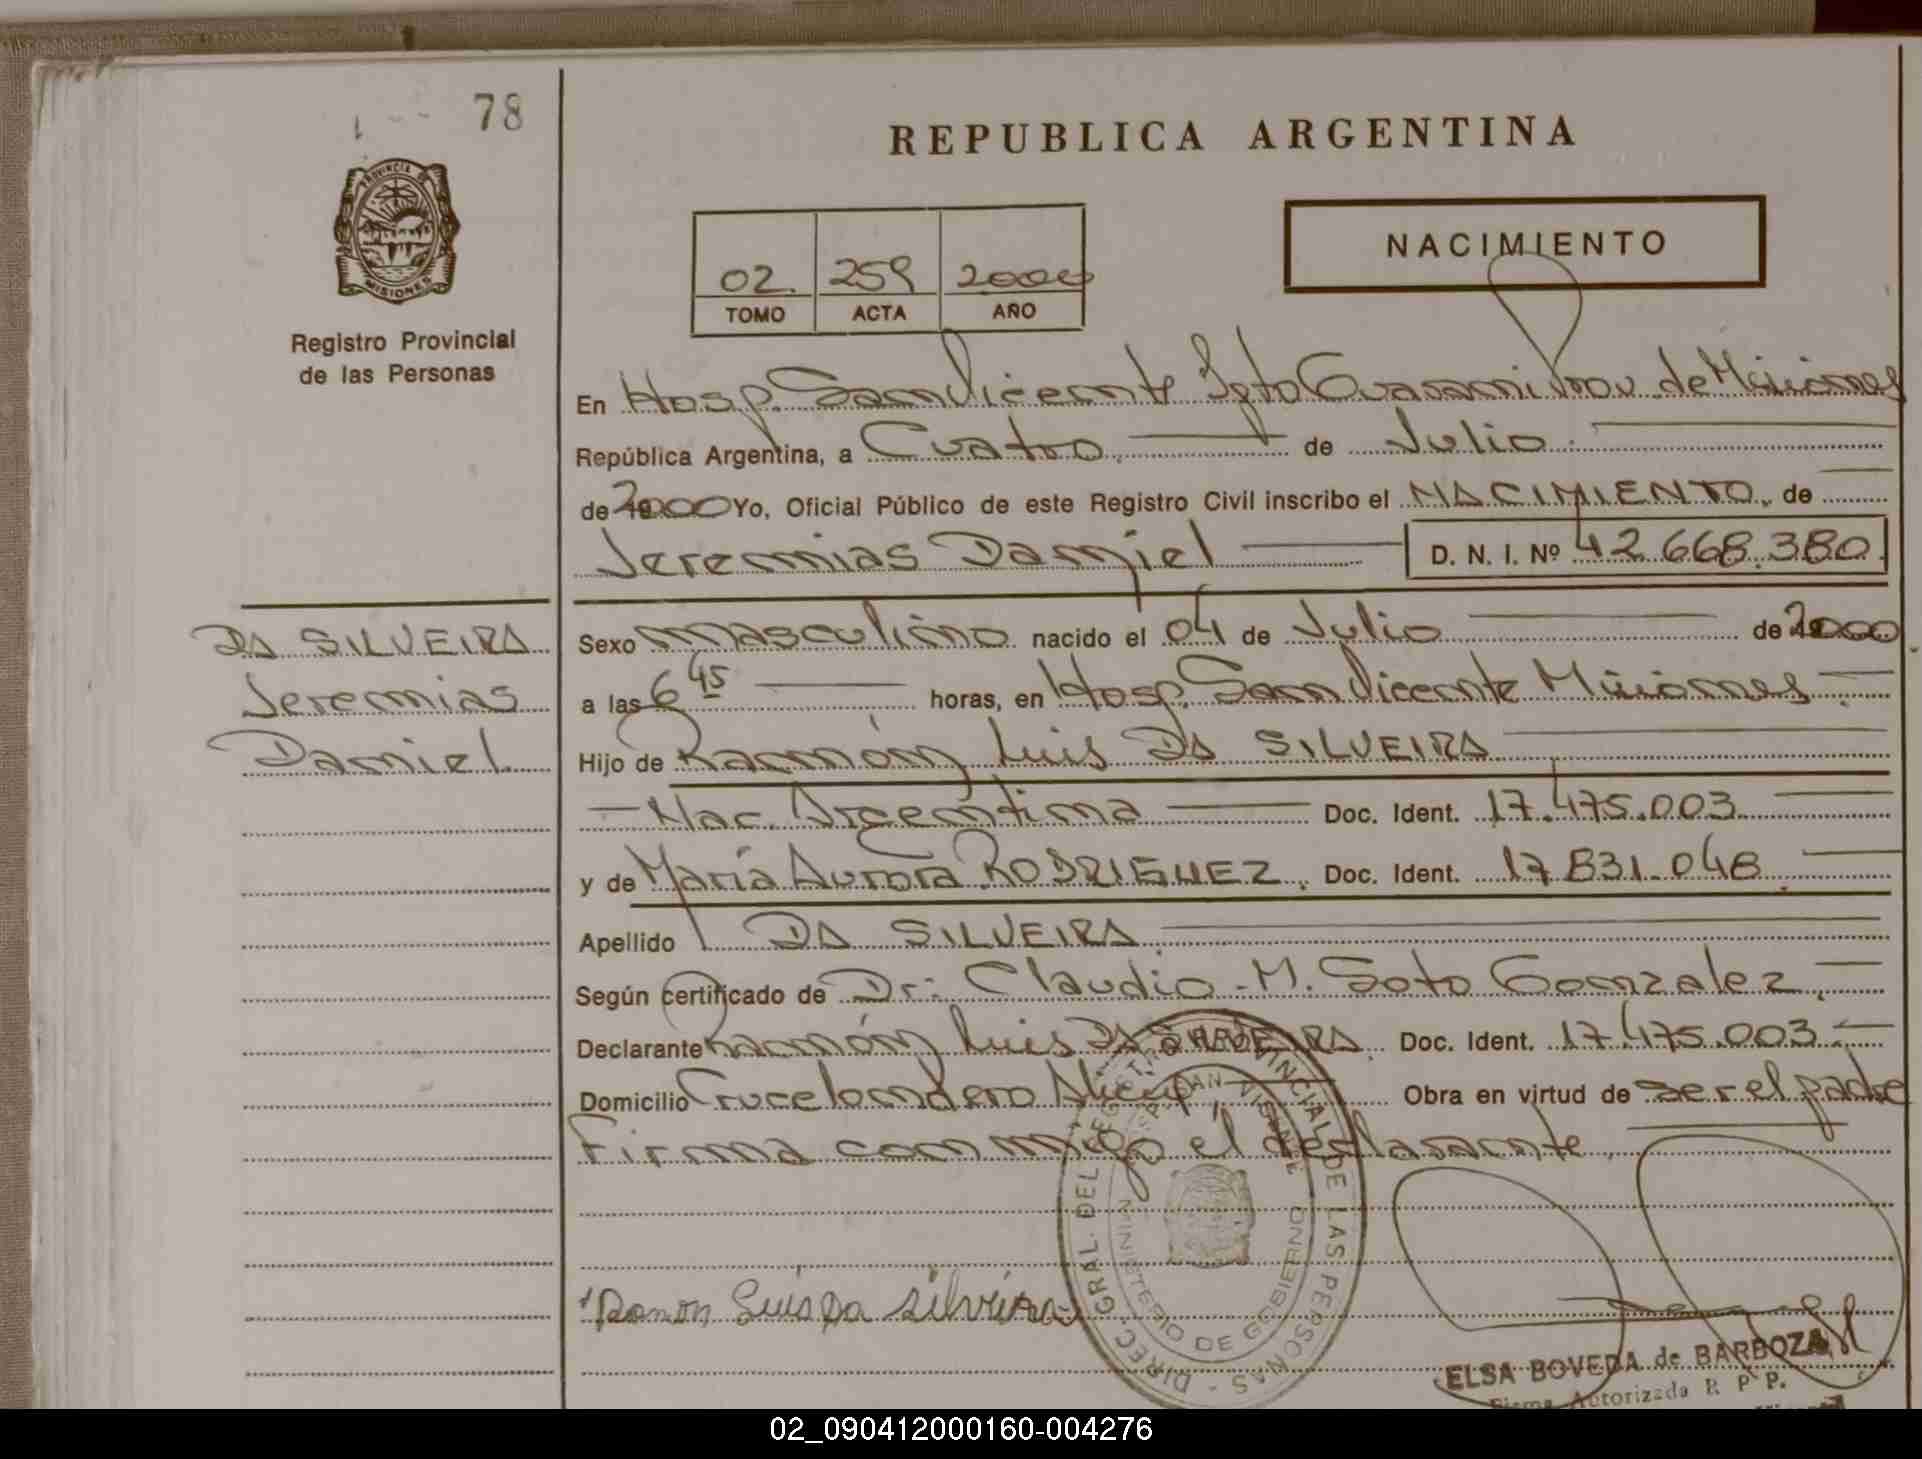 78
REPUBLICA ARGENTINA
PROVINCIA DE
MISIONES
Registro Provincial
de las Personas
02. 259 2000
TOMO ACTA AÑO
NACIMIENTO
En Hosp. San Vicente Dpto Guarani Prov. de Misiones
República Argentina, a Cuatro. de Julio.
de 2000 Yo, Oficial Público de este Registro Civil inscribo el NACIMIENTO, de
Jeremias Daniel D. N. I. Nº 42.668.380.
DA SILVEIRA
Jeremias
Daniel
Sexo masculino nacido el 04 de Julio de 2000
a las 6 45 horas, en Hosp. San Vicente Misiones
Hijo de Ramón Luis DA SILVEIRA
Nac. Argentina Doc. Ident. 17.475.003
y de María Aurora RODRIGUEZ. Doc. Ident. 17.831.048
Apellido DA SILVEIRA
Según certificado de Dr. Claudio M. Soto Gonzalez.
Declarante Ramón Luis DA SILVEIRA. Doc. Ident. 17.475.003
Domicilio Cruce Londero Obra en virtud de ser el padre
Firma conmigo el declarante
DIREC. GRAL. DEL REGISTRO PROVINCIAL DE LAS PERSONAS
SAN VICENTE
MINISTERIO DE GOBIERNO
Ramon Luis Da Silveira
ELSA BOVEDA de BARBOZA
Firma Autorizada R. P. P.
02_090412000160-004276